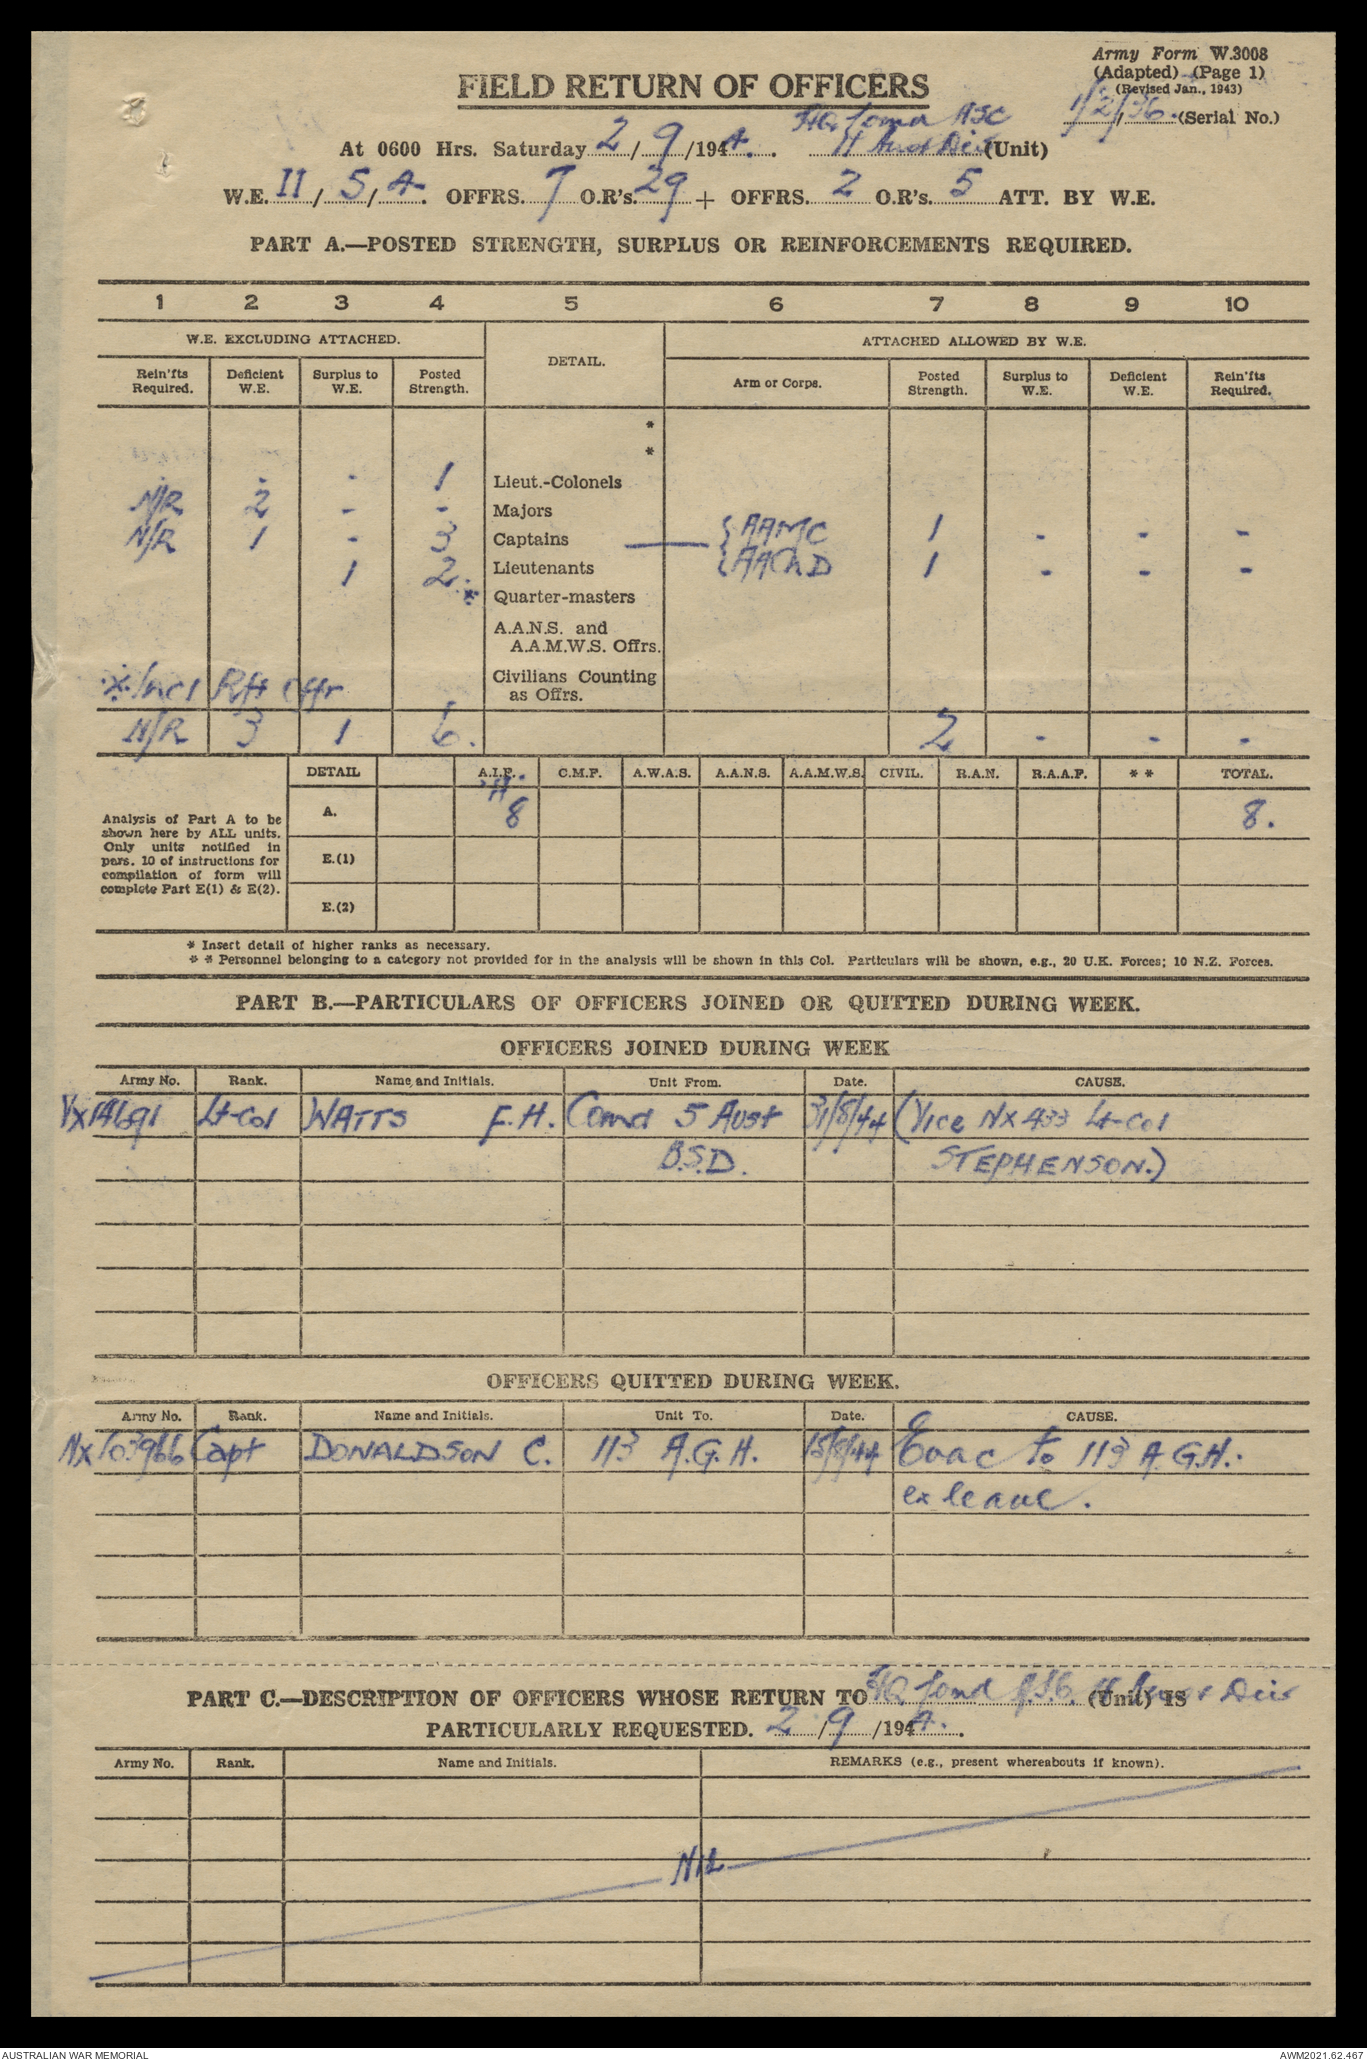 Army Form W.3008
(Adapted) (Page 1)
(Revised Jan., 1943)
FIELD RETURN OF OFFICERS
1/2/36. (Serial No.)
HQ Comd ASC
At 0600 Hrs. Saturday 2/9/1944. 11 Aust Div (Unit)
W.E. II/5/4. OFFRS. 7 O.R's. 29 + OFFRS. 2 O.R's. 5 ATT. BY W.E.
PART A.—POSTED STRENGTH, SURPLUS OR REINFORCEMENTS REQUIRED.
1 2 3 4 5 6 7 8 9 10
W.E. EXCLUDING ATTACHED. DETAIL. ATTACHED ALLOWED BY W.E.
Rein'fts Required. Deficient W.E. Surplus to W.E. Posted Strength. Arm or Corps. Posted Strength. Surplus to W.E. Deficient W.E. Rein'fts Required.
*
*
- - - 1 Lieut.-Colonels
N/R 2 - - Majors
N/R 1 - 3 Captains { AAMC 1 - - -
1 2.* Lieutenants { AAChD 1 - - -
Quarter-masters
A.A.N.S. and
A.A.M.W.S. Offrs.
Civilians Counting
as Offrs.
* Incl Rft Offr
N/R 3 1 6. 2 - - -
DETAIL A.I.F. C.M.F. A.W.A.S. A.A.N.S. A.A.M.W.S. CIVIL. R.A.N. R.A.A.F. * * TOTAL.
Analysis of Part A to be
shown here by ALL units.
Only units notified in
pars. 10 of instructions for
compilation of form will
complete Part E(1) & E(2).
A. 8 8.
E.(1)
E.(2)
* Insert detail of higher ranks as necessary.
* * Personnel belonging to a category not provided for in the analysis will be shown in this Col. Particulars will be shown, e.g., 20 U.K. Forces; 10 N.Z. Forces.
PART B.—PARTICULARS OF OFFICERS JOINED OR QUITTED DURING WEEK.
OFFICERS JOINED DURING WEEK
Army No. Rank. Name and Initials. Unit From. Date. CAUSE.
VX14691 Lt-Col WATTS F.H. Comd 5 Aust 31/8/44 (Vice NX433 Lt-Col
B.S.D. STEPHENSON.)
OFFICERS QUITTED DURING WEEK.
Army No. Rank. Name and Initials. Unit To. Date. CAUSE.
NX103966 Capt DONALDSON C. 113 A.G.H. 15/8/44 Evac to 113 A.G.H.
ex leave.
PART C.—DESCRIPTION OF OFFICERS WHOSE RETURN TO HQ Comd A.S.C. 11 Aust Div (Unit) IS
PARTICULARLY REQUESTED. 2/9/1944.
Army No. Rank. Name and Initials. REMARKS (e.g., present whereabouts if known).
NIL
AUSTRALIAN WAR MEMORIAL AWM2021.62.467